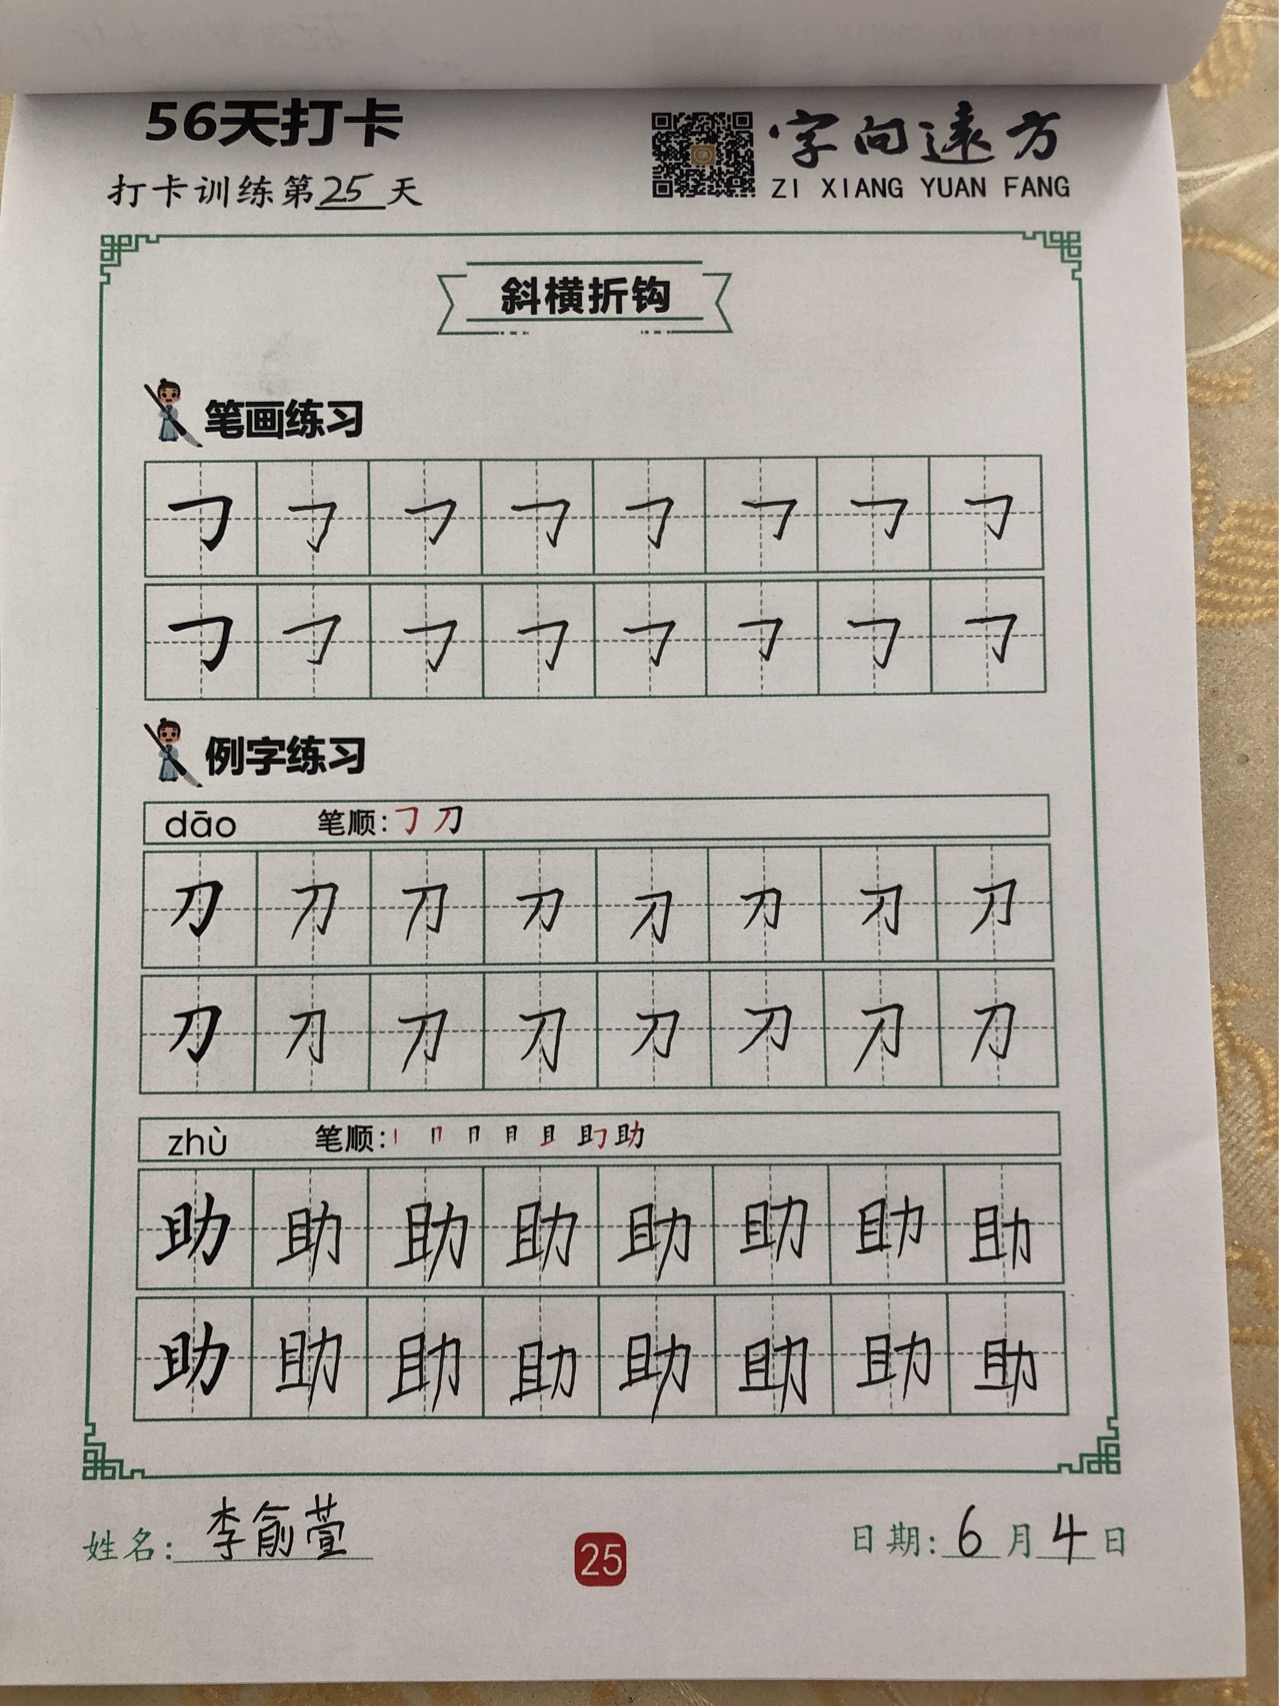 56天打卡
打卡训练第25天
字向远方
ZI XIANG YUAN FANG
斜横折钩
笔画练习
㇆ ㇆ ㇆ ㇆ ㇆ ㇆ ㇆ ㇆
㇆ ㇆ ㇆ ㇆ ㇆ ㇆ ㇆ ㇆
例字练习
dāo 笔顺:㇆ 刀
刀 刀 刀 刀 刀 刀 刀 刀
刀 刀 刀 刀 刀 刀 刀 刀
zhù 笔顺:丨 冂 月 月 且 助 助
助 助 助 助 助 助 助 助
助 助 助 助 助 助 助 助
姓名:李俞萱
25
日期:6月4日